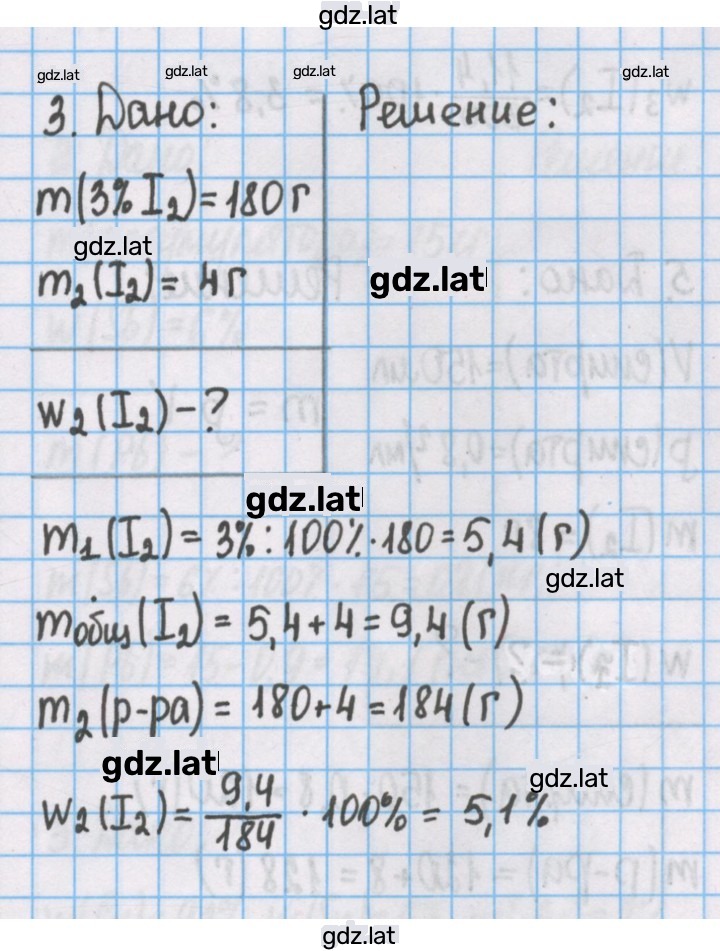 gdz.lat
gdz.lat gdz.lat gdz.lat gdz.lat
3. Дано: Решение:
m(3% I₂) = 180 г
gdz.lat
m₂(I₂) = 4 г gdz.lat
w₂(I₂) - ?
gdz.lat
m₁(I₂) = 3% : 100% · 180 = 5,4 (г)
gdz.lat
mобщ(I₂) = 5,4 + 4 = 9,4 (г)
m₂(р-ра) = 180 + 4 = 184 (г)
gdz.lat gdz.lat
w₂(I₂) = 9,4/184 · 100% = 5,1%
gdz.lat